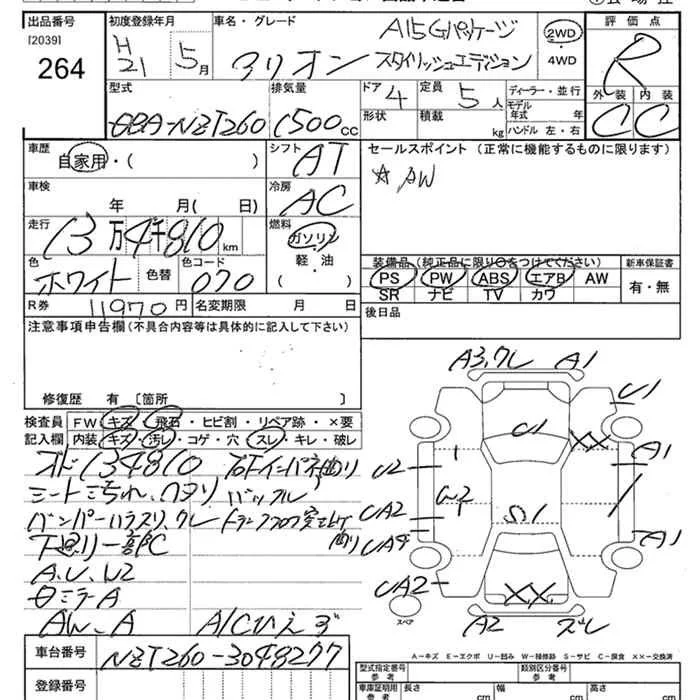 出品番号 初度登録年月 車名・グレード 評価点
[2039]
264
H21 5月 アリオン A15Gパッケージ
スタイリッシュエディション
2WD
・4WD
R
外装 内装
C C
型式 排気量 ドア 定員 ディーラー・並行
DBA-NZT260 1500cc 4 5人 モデル年式 年式
形状 積載 kg ハンドル 左・右
車歴 シフト セールスポイント (正常に機能するものに限ります)
自家用・( ) AT ☆AW
車検 冷房
年 月( 日) AC
走行 燃料
13万4千810km ガソリン
軽・油
( )
色 色替 色コード
ホワイト 070
装備品(純正品に限り○をつけてください) 新車保証書
PS PW ABS エアB AW 有・無
SR ナビ TV カワ
R券 11970円 名変期限 月 日 後日品
注意事項申告欄(不具合内容等は具体的に記入して下さい)
修復歴 有 〔箇所 〕
検査員 FW・キズ・飛石・ヒビ割・リペア跡・×要
記入欄 内装・キズ・汚レ・コゲ・穴・スレ・キレ・破レ
オド134810
シート汚れ、
バンパーハラスリ、クレ トランクフロア
下廻り一部C
A、U、W2
ミラーA
AW、A A/Cひえず
A3,クレ A1
U1
U1
XX
A1
U2
W2
UA2
S1
UA9
A1
UA2
XX
スペア
A2 ズレ
A-キズ E-エクボ U-凹み W-補修跡 S-サビ C-腐食 ××-交換済
車台番号 NZT260-3048277
登録番号
型式指定番号 参考 類別区分番号 参考
車庫証明用 参考 長さ cm 幅 cm 高さ cm